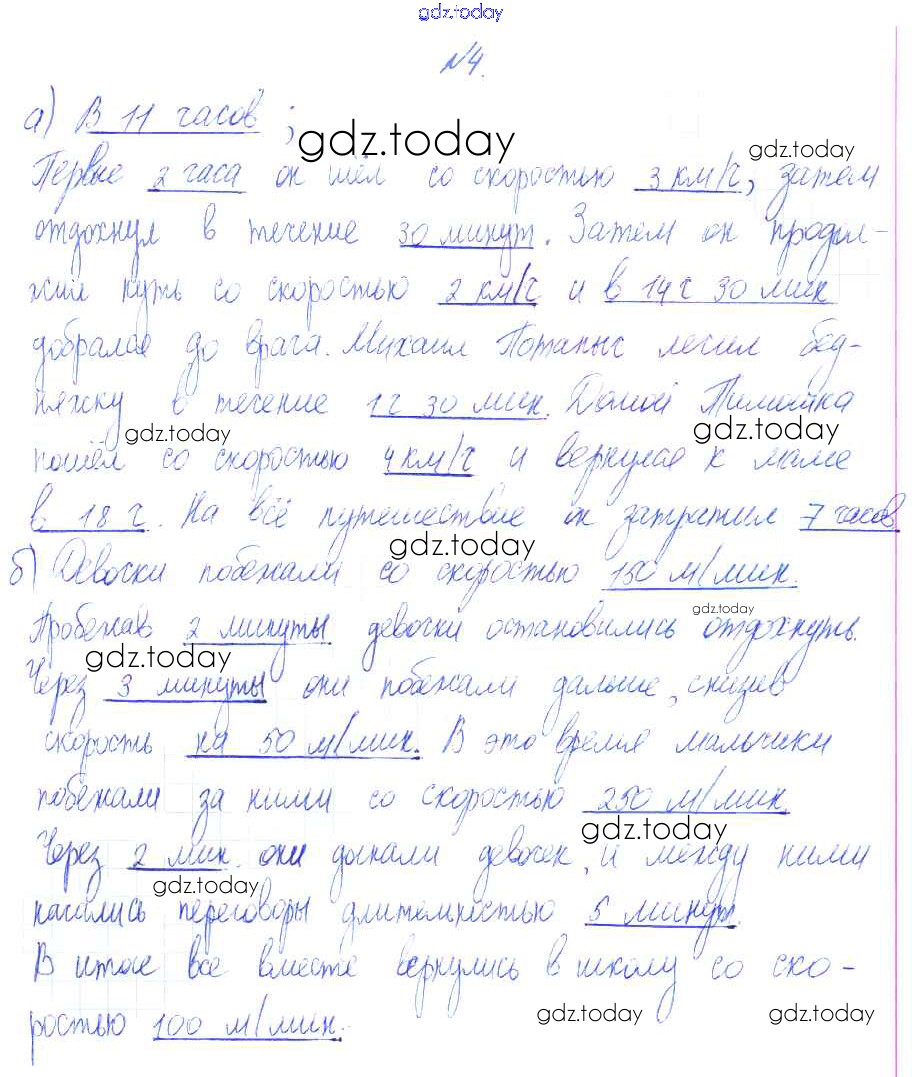 gdz.today
№4.
а) В 11 часов ;
gdz.today
gdz.today
Первые 2 часа он шёл со скоростью 3 км/ч, затем
отдохнул в течение 30 минут. Затем он продол-
жил путь со скоростью 2 км/ч и в 14 ч 30 мин
добрался до врача. Михаил Потапыч лечил бед-
няжку в течение 1 ч 30 мин. Домой Тимошка
gdz.today
gdz.today
пошёл со скоростью 4 км/ч и вернулся к маме
в 18 ч. На всё путешествие он затратил 7 часов
gdz.today
б) Девочки побежали со скоростью 150 м/мин.
gdz.today
Пробежав 2 минуты девочки остановились отдохнуть.
gdz.today
Через 3 минуты они побежали дальше, снизив
скорость на 50 м/мин. В это время мальчики
побежали за ними со скоростью 250 м/мин.
gdz.today
Через 2 мин. они догнали девочек, и между ними
gdz.today
начались переговоры длительностью 5 минут.
В итоге все вместе вернулись в школу со ско-
ростью 100 м/мин.
gdz.today
gdz.today